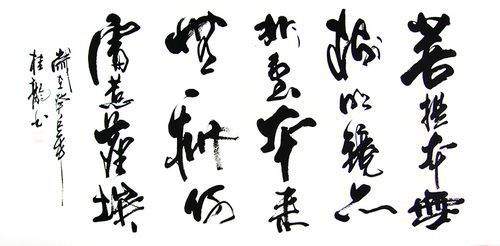 菩提本無
樹明鏡亦
非臺本来
無一物何
處惹塵埃
歲在癸巳
桂龍书